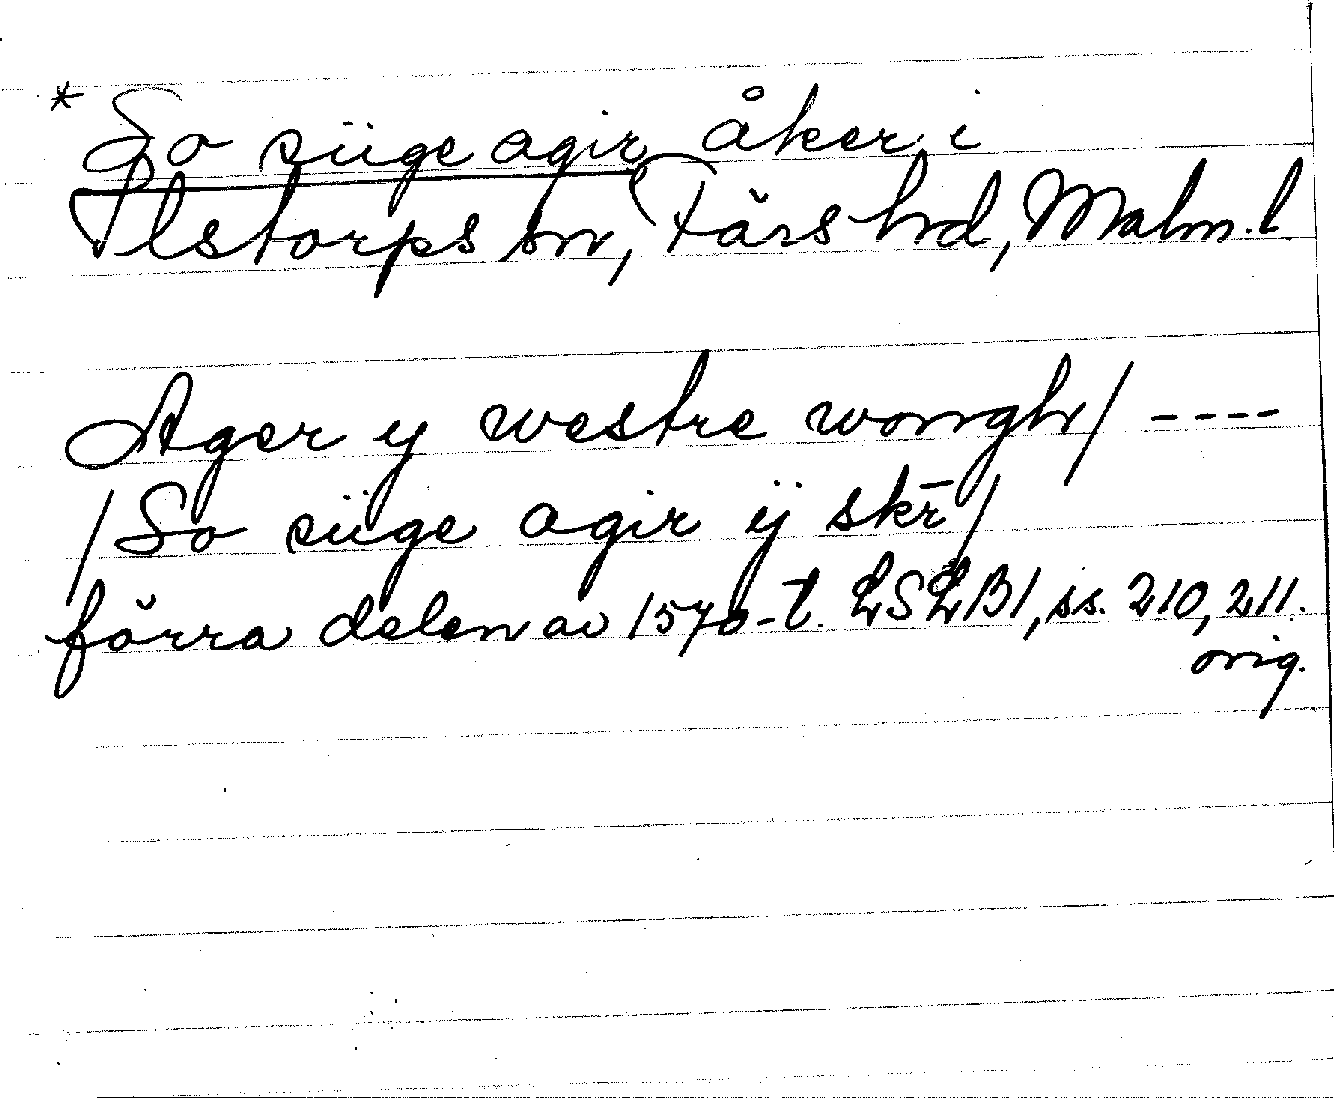 * So siige agir åker i
Ilstorps sn, Färs hd, Malm. l.
Ager y westre wongh/ ----
/So siige agir ij skr̄/
förra delen av 1570-t. LSLB1, ss. 210, 211.
orig.